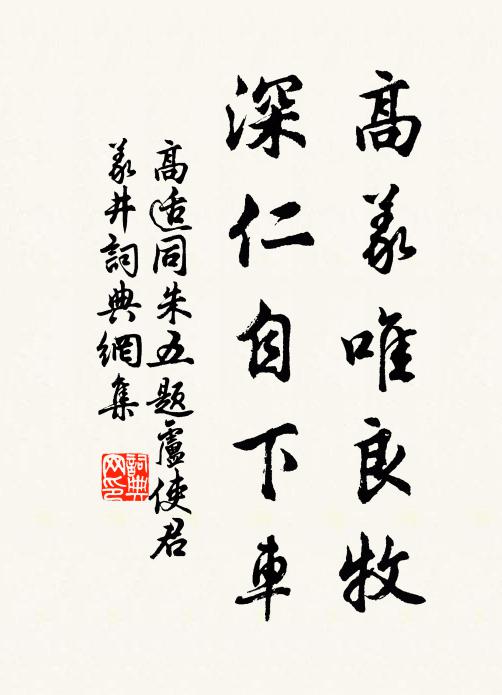 高義唯良牧
深仁自下車
高适同朱五題盧使君
義井詞典網集
詞典
网印